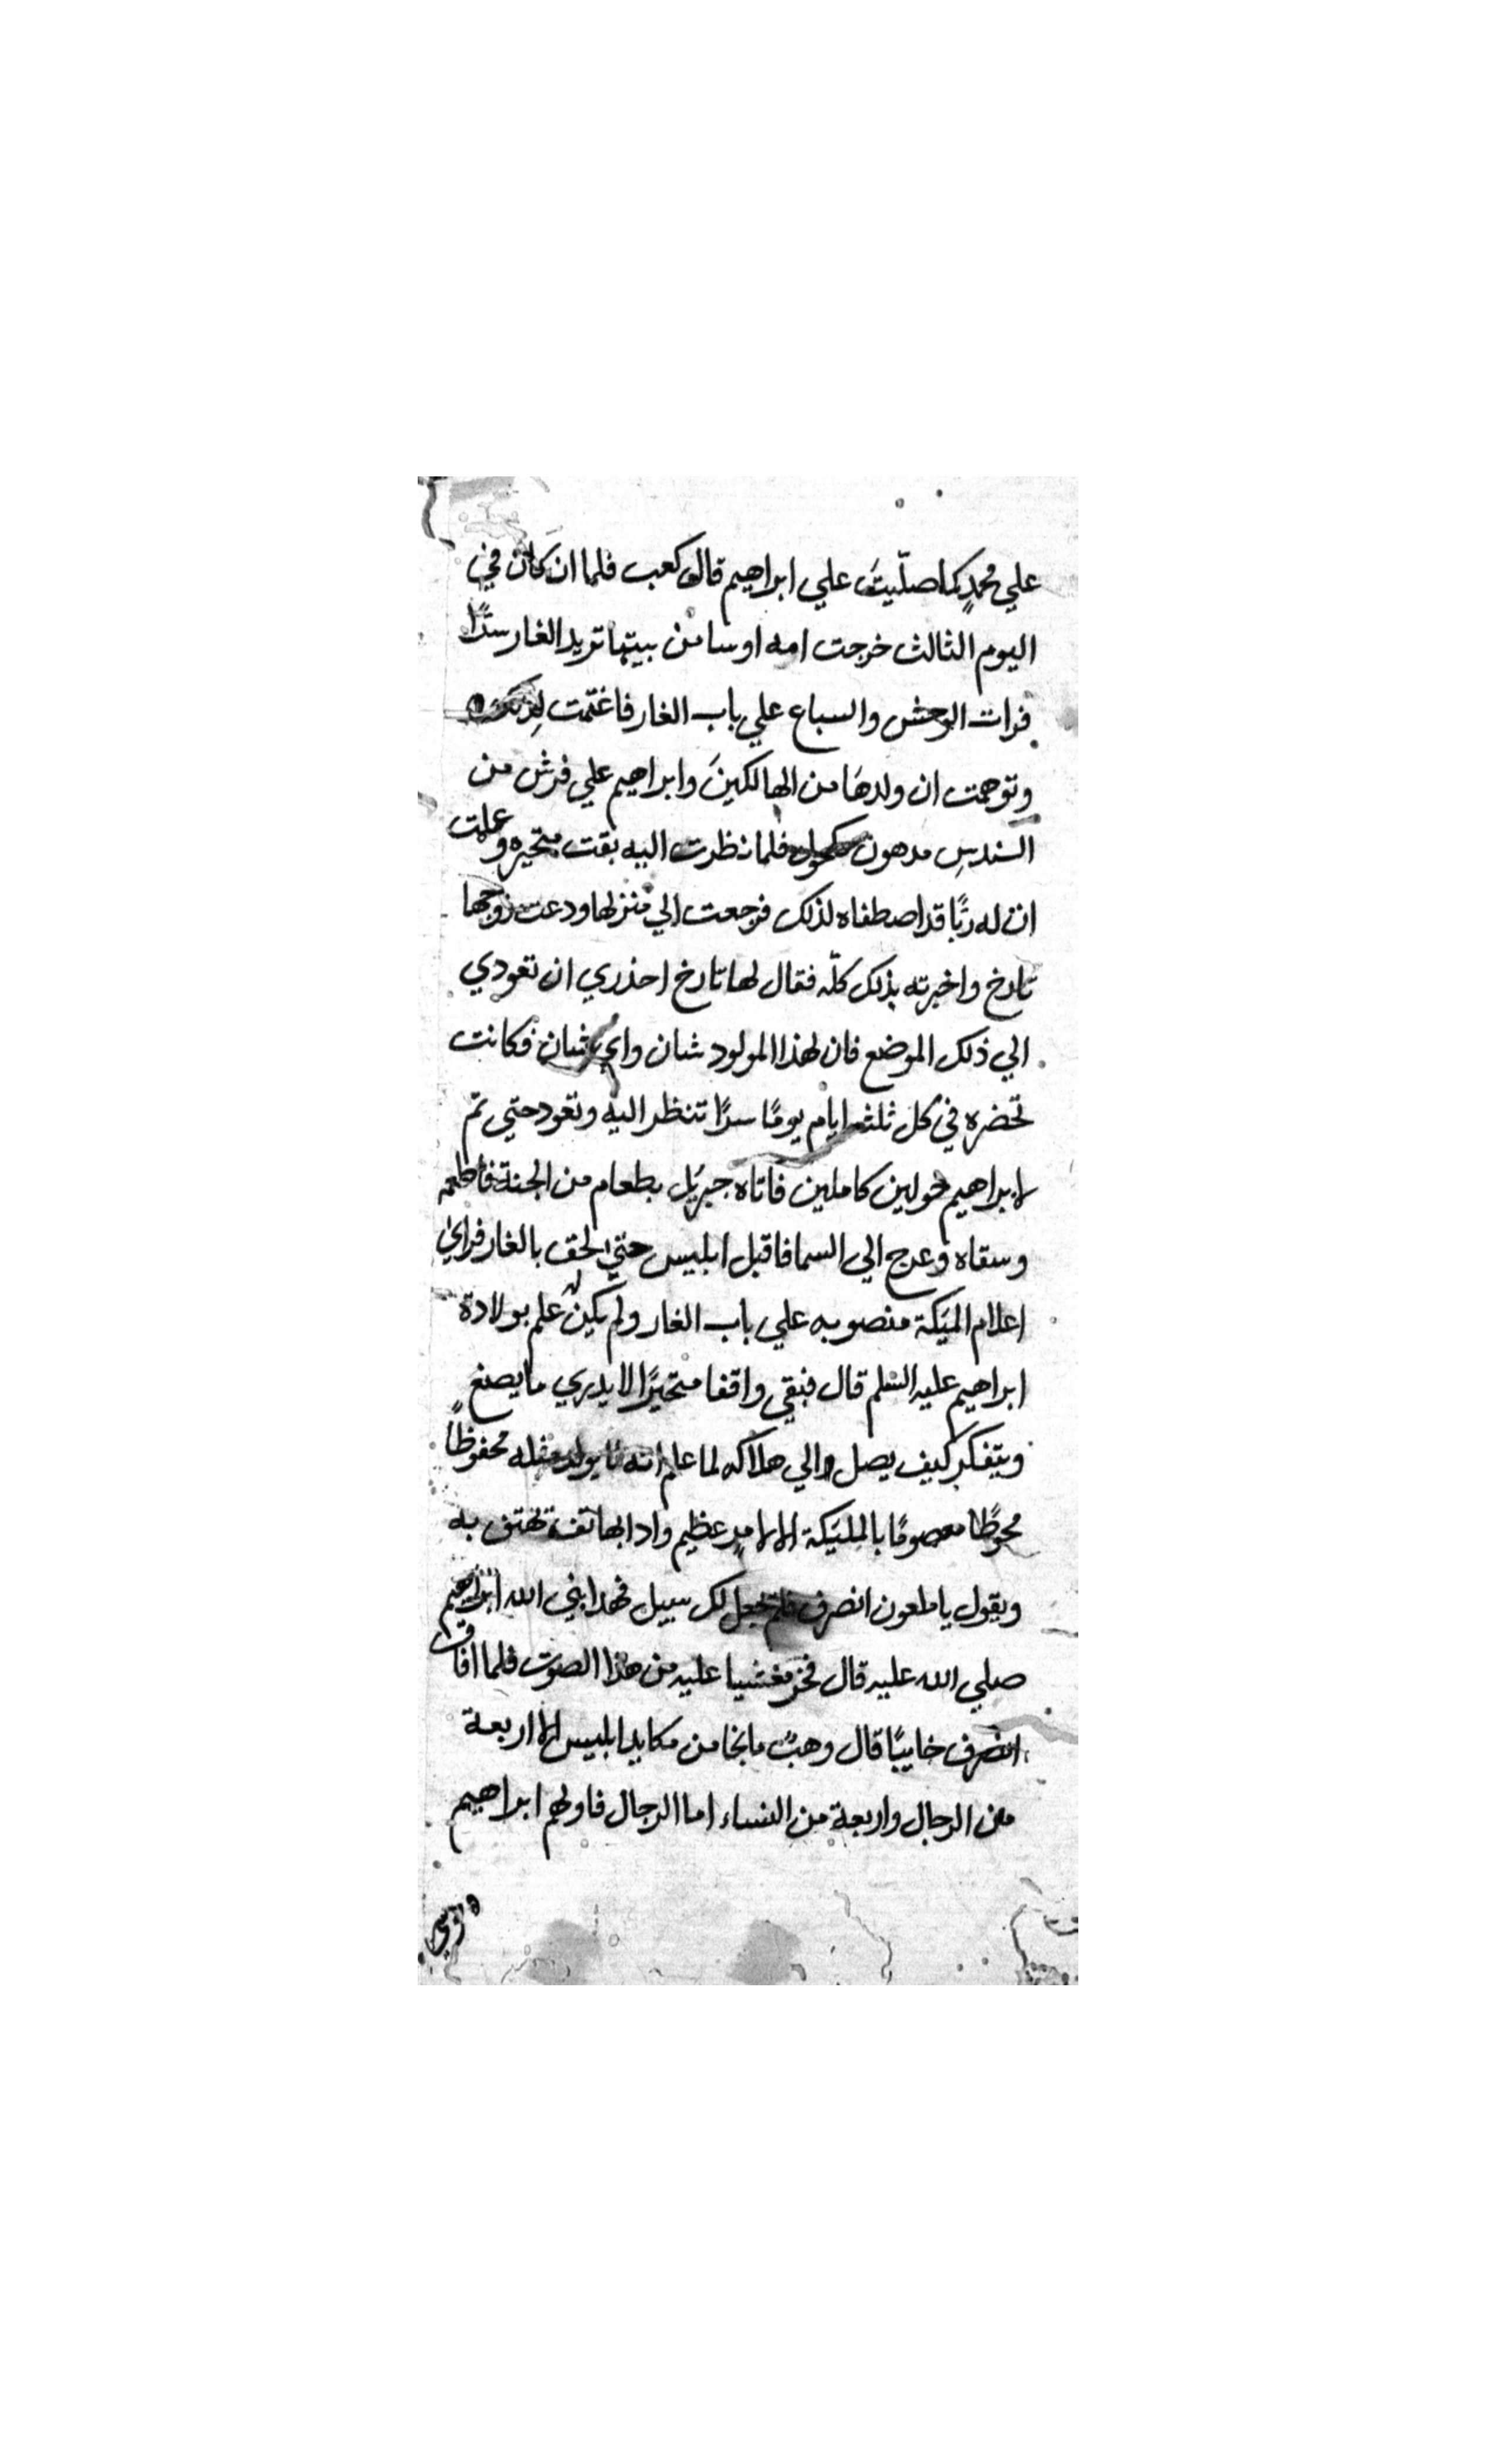 علي محمدٍ كما صلّيتَ علي ابراهيم قال كعب فلما ان كان في
اليوم الثالث خرجت امه اوسا من بيتها تريد الغار سرًّا
فرات الوحش والسباع علي باب الغار فاغتمّت لِذلك
وتوهمت ان ولدهَا من الهالكينَ وابراهيم علي فرش من
السندسِ مدهون مكحول فلما نظرت اليه بقت متحيره وعلمت
ان له ربًّا قد اصطفاه لذلك فرجعت الي منزلها ودعت زوجها
تارخ واخبرته بذلك كلّه فقال لها تارخ احذري ان تعودي
الي ذلك الموضع فان لهذا المولود شان واي شان فكانت
تحضره في كل ثلثه ايام يومًا سرًا تنظر اليه وتعود حتي تم
لابراهيم حولين كاملين فاتاه جبريل بطعام من الجنة فاطعمه
وسقاه وعرج الي السما فاقبل ابليس حتي لحق بالغار فراي
اعلام المليكة منصوبه علي باب الغار ولم يكن له علم بولادة
ابراهيم عليه السلم قال فبقي واقفا متحيرًا لا يدري ما يصنع
ويتفكر كيف يصل الي هلاكه لما علم انه يولد مثله محفوظًا
محوطًا معصومًا بالمليكة الا لامرٍ عظيم واذا بهاتف تهتف به
ويقول يا ملعون انصرف فلم نجعل لك سبيل فهذا نبي الله ابراهيم
صلي الله عليه قال فخر مغشيا عليه من هذا الصوت فلما افاق
انصرف خايبًا قال وهبٌ ما نجا من مكايد ابليس الا اربعة
من الرجال واربعة من النساء اما الرجال فاولهم ابراهيم